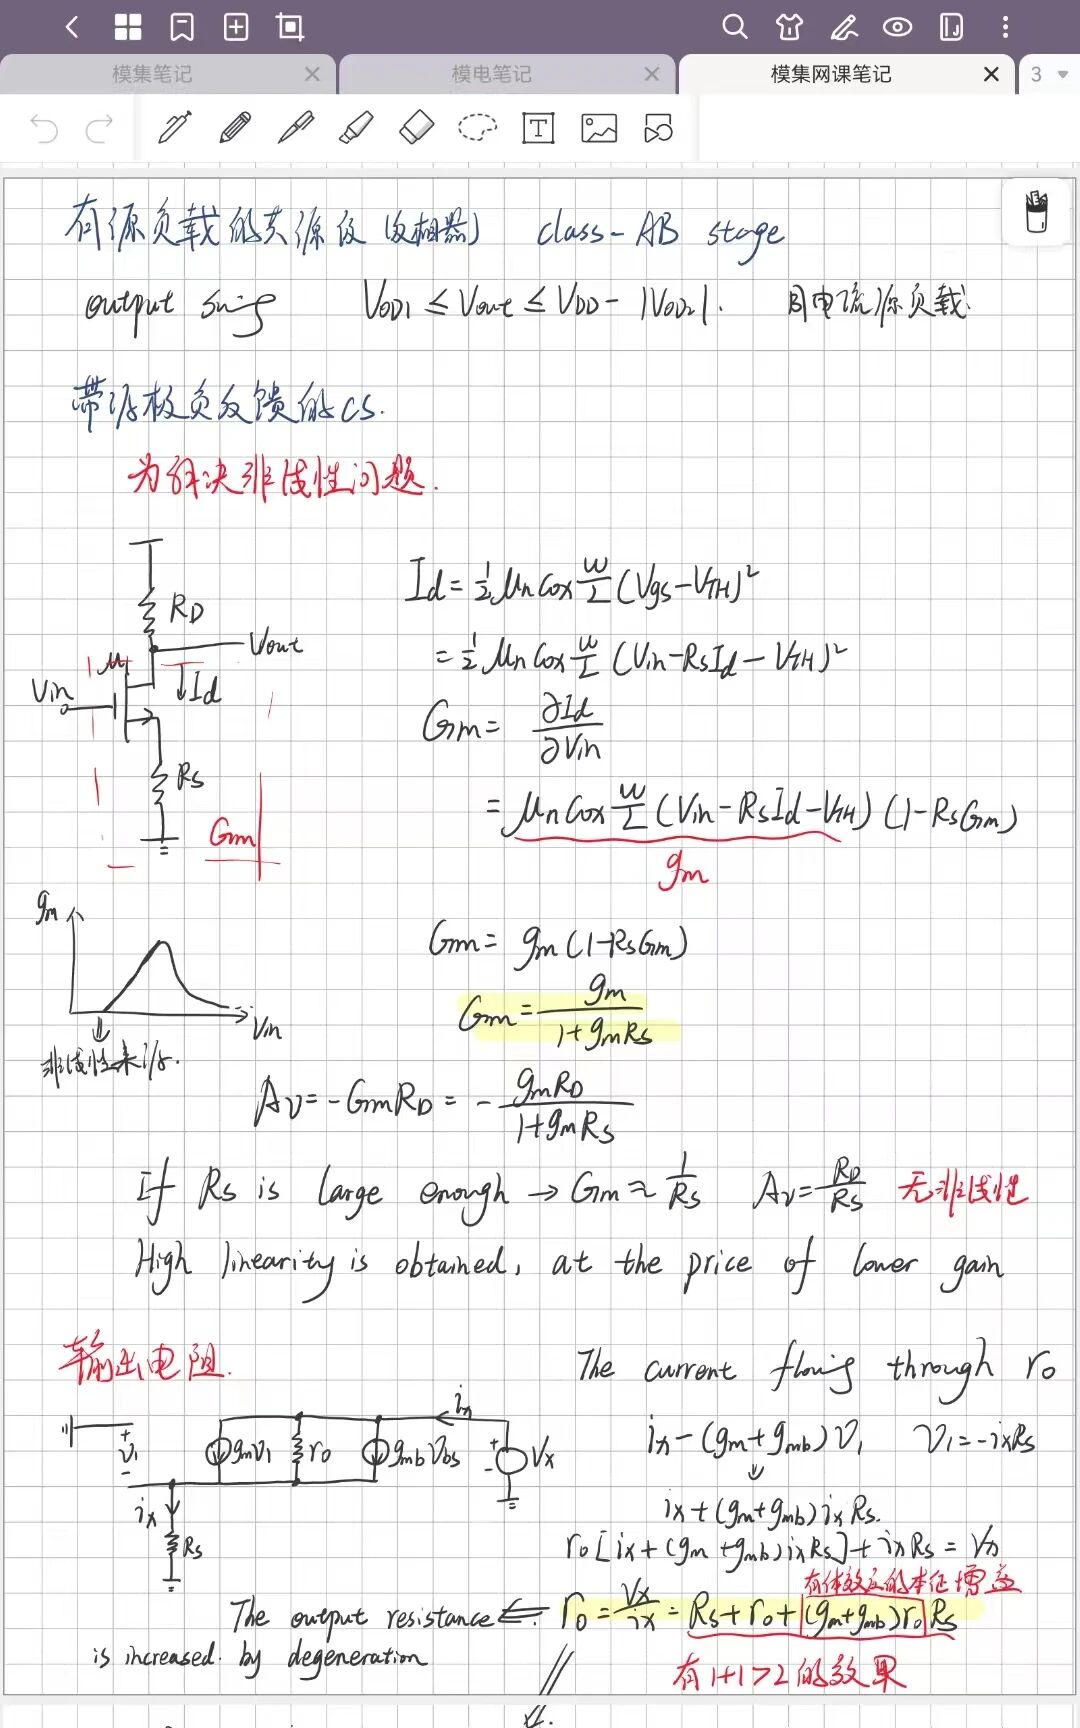 模集笔记
模电笔记
模集网课笔记
3
有源负载的共源级(反相器) class-AB stage
output swing VOD1 ≤ Vout ≤ VDD - |VOD2|. 同电流源负载.
带源极负反馈的CS.
为解决非线性问题.
RD
Vout
M1
Id
Vin
Rs
Gm
Id = ½ μn Cox W/L (Vgs - VTH)²
= ½ μn Cox W/L (Vin - RsId - VTH)²
Gm = ∂Id/∂Vin
= μn Cox W/L (Vin - RsId - VTH) (1 - RsGm)
gm
gm
Vin
非线性来源.
Gm = gm (1 - RsGm)
Gm = gm/(1 + gmRs)
Av = -GmRD = - gmRD/(1 + gmRs)
If Rs is large enough → Gm ≈ 1/Rs Av = RD/Rs 无非线性
High linearity is obtained, at the price of lower gain
输出电阻.
+
v1
-
gmv1
ro
gmbVbs
ix
+
-
Vx
ix
Rs
The current flowing through ro
ix - (gm + gmb) V1 V1 = -ixRs
ix + (gm + gmb) ix Rs.
ro [ix + (gm + gmb) ixRs] + ixRs = Vx
有体效应的本征增益
The output resistance ⇐ ro = Vx/ix = Rs + ro + (gm + gmb) ro Rs
is increased by degeneration
有1+1>2的效果